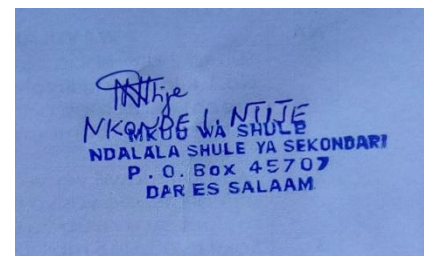 NKONDE L. NTIJE
MKUU WA SHULE
NDALALA SHULE YA SEKONDARI
P. O. Box 45707
DAR ES SALAAM